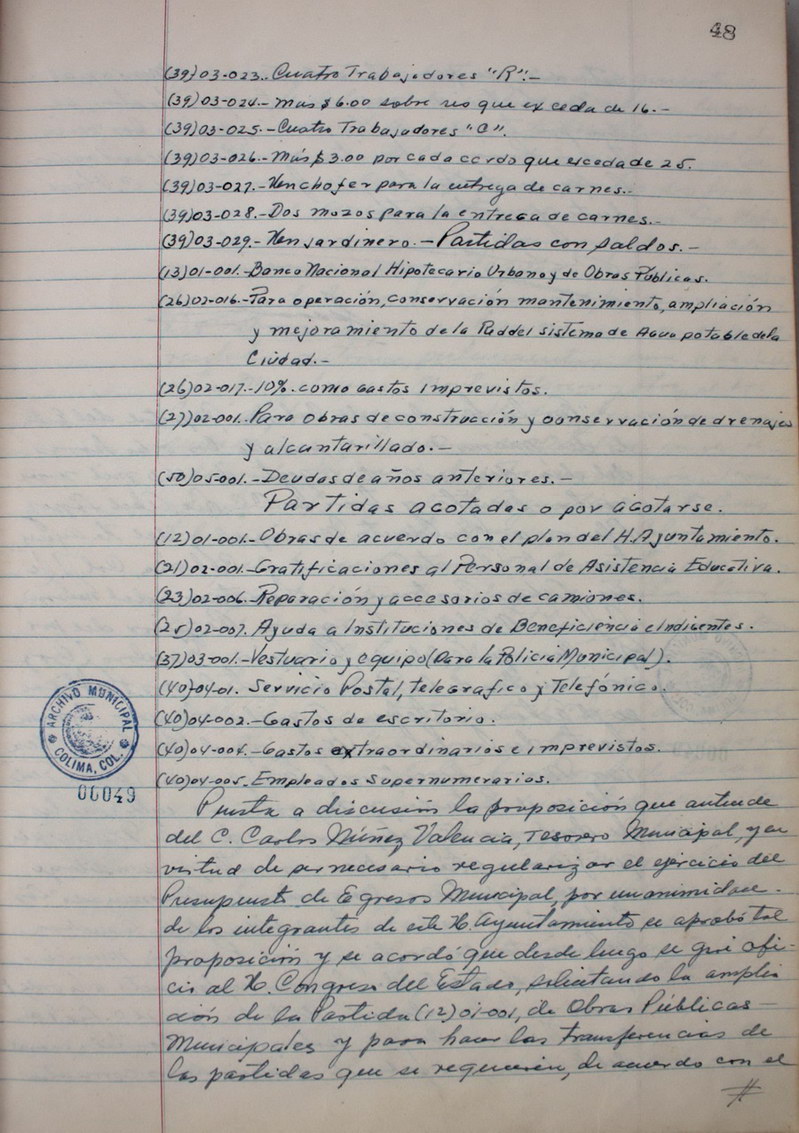 48
(39)03-023.-Cuatro Trabajadores "R".-
(39)03-024.-Mas $6.00 sobre res que exceda de 16.-
(39)03-025.-Cuatro Trabajadores "C".
(39)03-026.-Más $3.00 por cada cerdo que exceda de 25.
(39)03-027.-Un chofer para la entrega de carnes.-
(39)03-028.-Dos mozos para la entrega de carnes.-
(39)03-029.-Un jardinero.-Partidas con saldos.-
(13)01-001.-Banco Nacional Hipotecario Urbano y de Obras Públicas.
(26)02-016.-Para operación, conservación mantenimiento, ampliación
y mejoramiento de la Red del sistema de Agua potable de la
Ciudad.-
(26)02-017.-10%. como Gastos Imprevistos.
(27)02-001.Para Obras de construcción y conservación de drenajes
y alcantarillado.-
(50)05-001.-Deudas de años anteriores.-
Partidas acotadas o por acotarse.
(12)01-001.-Obras de acuerdo con el plan del H. Ayuntamiento.
(21)02-001.-Gratificaciones al Personal de Asistencia Educativa.
(23)02-006.-Reparación y accesorios de camiones.
(25)02-007. Ayuda a Instituciones de Beneficiencia e Indigentes.
(37)03-001.-Vestuario y equipo (Para la Policia Municipal).
(40)04-01. Servicio Postal, telegrafico y Telefónico.
(40)04-002.-Gastos de escritorio.
(40)04-004.-Gastos extraordinarios e imprevistos.
(40)04-005.-Empleados Supernumerarios.
ARCHIVO MUNICIPAL
COLIMA, COL.
00049
Puesta a discusión la proposición que antecede
del C. Carlos Núñez Valencia, Tesorero Municipal, y en
virtud de ser necesario regularizar el ejercicio del
Presupuesto de Egresos Municipal, por unanimidad.
de los integrantes de este H. Ayuntamiento se aprobó tal
proposición y se acordó que desde luego se gire ofi-
cio al H. Congreso del Estado, solicitando la amplia
ción de la Partida (12)01-001, de Obras Públicas-
Municipales y para hacer las transferencias de
las partidas que se requieren, de acuerdo con el
#